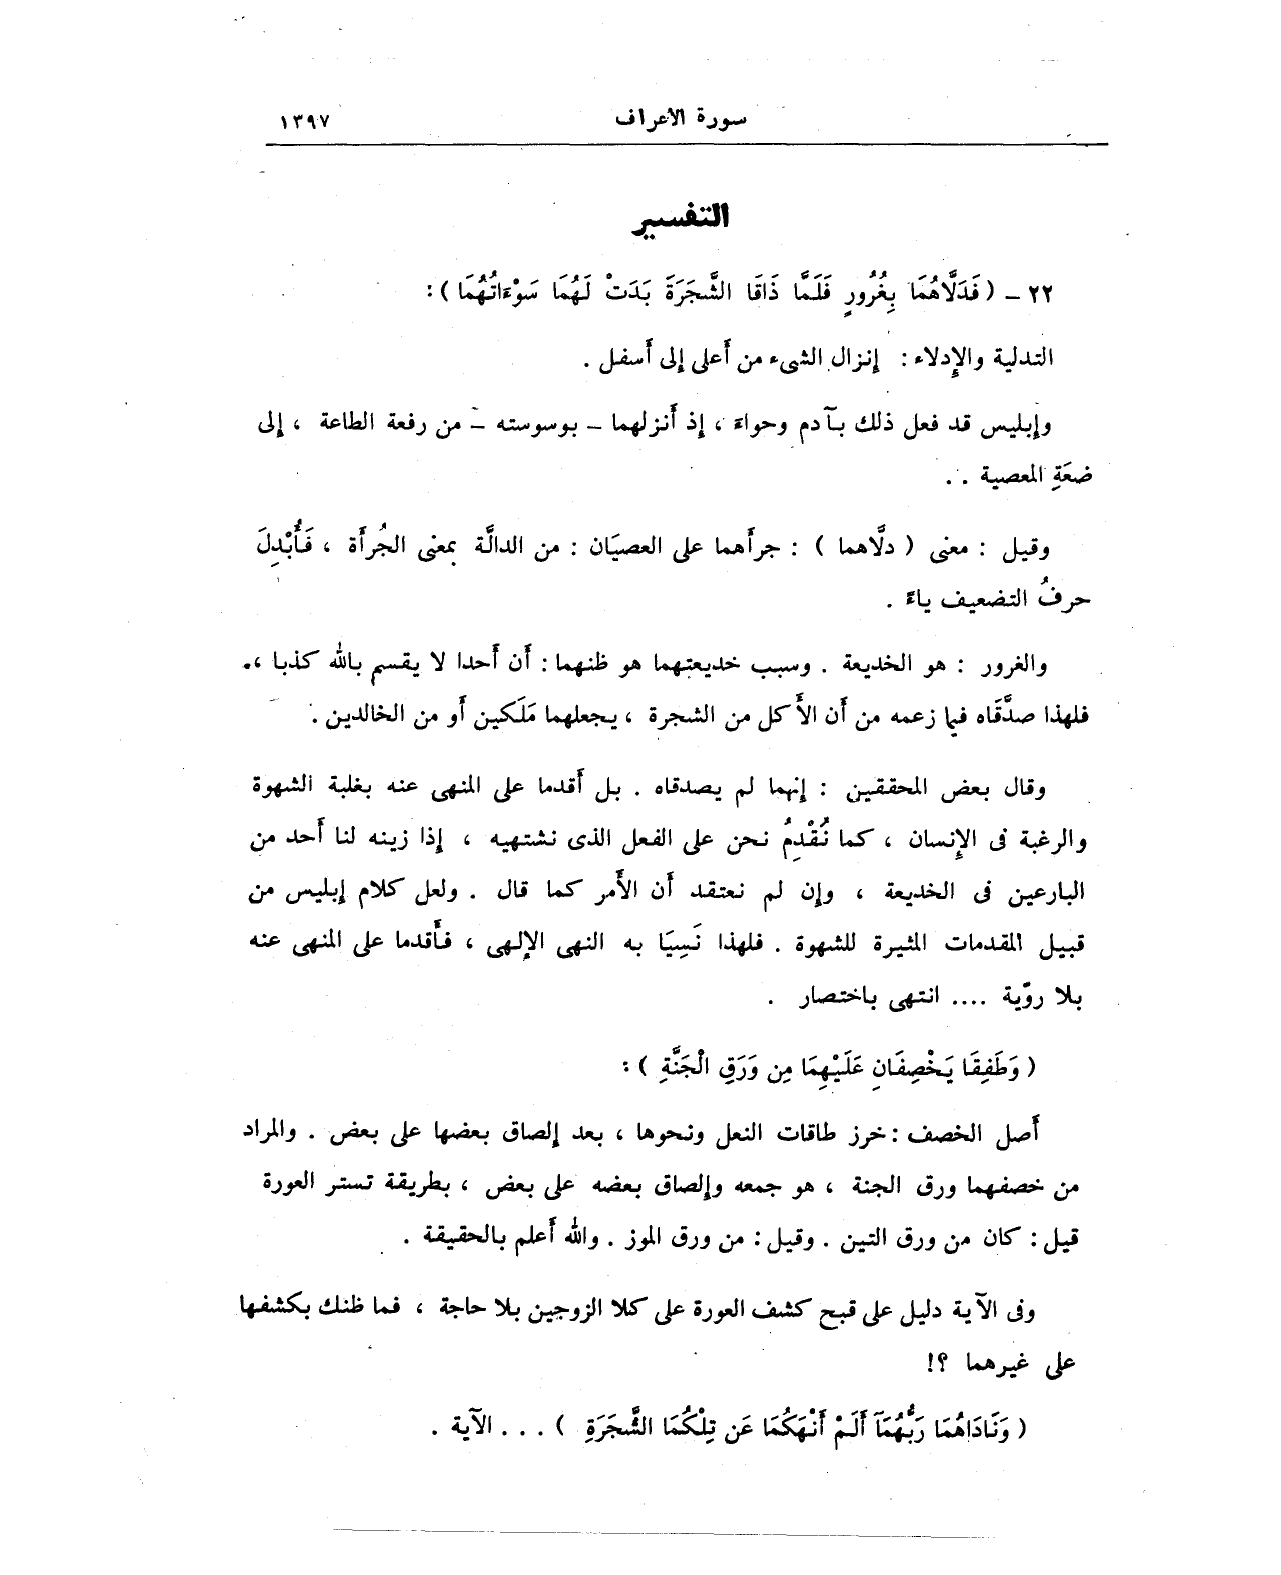 سورة الأعراف ١٣٩٧
التفسير
٢٢ - ( فَدَلَّاهُمَا بِغُرُورٍ فَلَمَّا ذَاقَا الشَّجَرَةَ بَدَتْ لَهُمَا سَوْءَاتُهُمَا ) :
التدلية والإدلاء : إنزال الشىء من أعلى إلى أسفل .
وإبليس قد فعل ذلك بآدم وحواءَ ، إذ أنزلهما - بوسوسته - من رفعة الطاعة ، إلى
ضعَةِ المعصية . .
وقيل : معنى ( دلَّاهما ) : جرأهما على العصيَان : من الدالَّة بمعنى الجُرأَة ، فَأُبْدِلَ
حرفُ التضعيف ياءً .
والغرور : هو الخديعة . وسبب خديعتهما هو ظنهما : أن أحدا لا يقسم بالله كذبا ،.
فلهذا صدَّقَاه فيما زعمه من أن الأكل من الشجرة ، يجعلهما مَلَكين أو من الخالدين .
وقال بعض المحققين : إنهما لم يصدقاه . بل أقدما على المنهى عنه بغلبة الشهوة
والرغبة فى الإنسان ، كما نُقْدِمُ نحن على الفعل الذى نشتهيه ، إذا زينه لنا أحد من
البارعين فى الخديعة ، وإن لم نعتقد أن الأمر كما قال . ولعل كلام إبليس من
قبيل المقدمات المثيرة للشهوة . فلهذا نَسِيَا به النهى الإلهى ، فأقدما على المنهى عنه
بلا روّية .... انتهى باختصار .
( وَطَفِقَا يَخْصِفَانِ عَلَيْهِمَا مِن وَرَقِ الْجَنَّةِ ) :
أصل الخصف : خرز طاقات النعل ونحوها ، بعد إلصاق بعضها على بعض . والمراد
من خصفهما ورق الجنة ، هو جمعه وإلصاق بعضه على بعض ، بطريقة تستر العورة
قيل : كان من ورق التين . وقيل : من ورق الموز . والله أعلم بالحقيقة .
وفى الآية دليل على قبح كشف العورة على كلا الزوجين بلا حاجة ، فما ظنك بكشفها
على غيرهما ؟!
( وَنَادَاهُمَا رَبُّهُمَآ أَلَمْ أَنْهَكُمَا عَن تِلْكُمَا الشَّجَرَةِ ) . . . الآية .